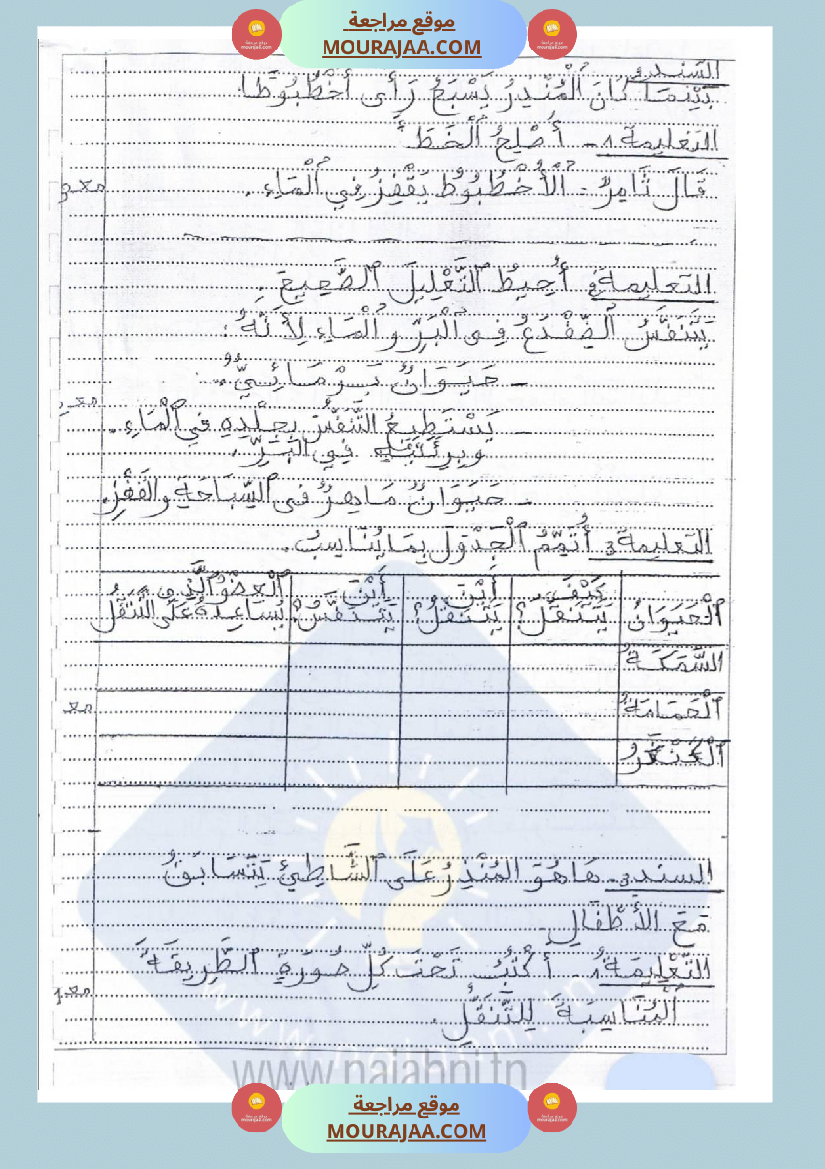 موقع مراجعة
MOURAJAA.COM
السند 2
بَيْنَمَا كَانَ الْمُنْذِرُ يَسْبَحُ رَأَى أُخْطُبُوطًا.
التعليمة 1 - أُصْلِحُ الْخَطَأَ
قَالَ ثَامِرٌ: الْأُخْطُبُوطُ يَقْفِزُ فِي الْمَاءِ.
مع 3
التعليمة 2 أُحِيطُ التَّعْلِيلَ الصَّحِيحَ.
يَتَنَفَّسُ الضِّفْدَعُ فِي الْبَرِّ وَ الْمَاءِ لِأَنَّهُ:
- حَيَوَانٌ بَرْمَائِيٌّ.
مع 2
- يَسْتَطِيعُ التَّنَفُّسَ بِجِلْدِهِ فِي الْمَاءِ.
وبِرِئَتَيْهِ فِي الْبَرِّ.
- حَيَوَانٌ مَاهِرٌ فِي السِّبَاحَةِ والقَفْزِ.
التعليمة 3 أُتَمِّمُ الْجَدْوَلَ بِمَا يُنَاسِبُ.
الْحَيَوَانُ كَيْفَ يَتَنَقَّلُ؟ أَيْنَ يَتَنَقَّلُ؟ أَيْنَ يَتَنَفَّسُ؟ الْعُضْوُ الَّذِي يُسَاعِدُهُ عَلَى التَّنَقُّلِ
السَّمَكَةُ
الْحَمَامَةُ
مع
الْكَنْغَرُ
السند 3 - هَاهُوَ المُنْذِرُ عَلَى الشَّاطِئِ يَتَسَابَقُ
مَعَ الأَطْفَالِ.
التَّعْلِيمَةُ 1 - أَكْتُبُ تَحْتَ كُلِّ صُورَةٍ الطَّرِيقَةَ
مع 1
الْمُنَاسِبَةَ لِلتَّنَقُّلِ.
www.najahni.tn
موقع مراجعة
MOURAJAA.COM